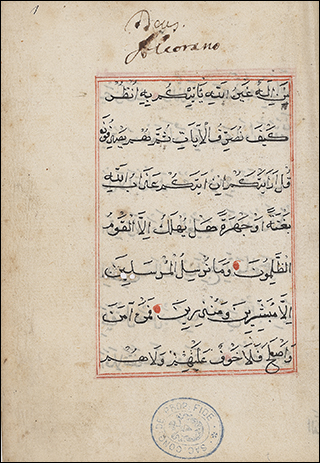 1
Alcorano
مَنْ اِلَهٌ غَيْرُ اللَّهِ يَاْتِيكُمْ بِهِ اُنْظُرْ
كَيْفَ نُصَرِّفُ الْاٰيَاتِ ثُمَّ هُمْ يَصْدِفُونَ
قُلْ اَرَاَيْتَكُمْ اِنْ اَتَيكُمْ عَذَابُ اللَّهِ
بَغْتَةً اَوْ جَهْرَةً هَلْ يُهْلَكُ اِلَّا الْقَوْمُ
الظَّلِمُونَ وَمَا نُرْسِلُ الْمُرْسَلِينَ
اِلَّا مُبَشِّرِينَ وَمُنْذِرِينَ فَمَنْ اٰمَنَ
وَاَصْلَحَ فَلَا خَوْفٌ عَلَيْهِمْ وَلَا هُمْ
SAC CONG DE PROP FIDE